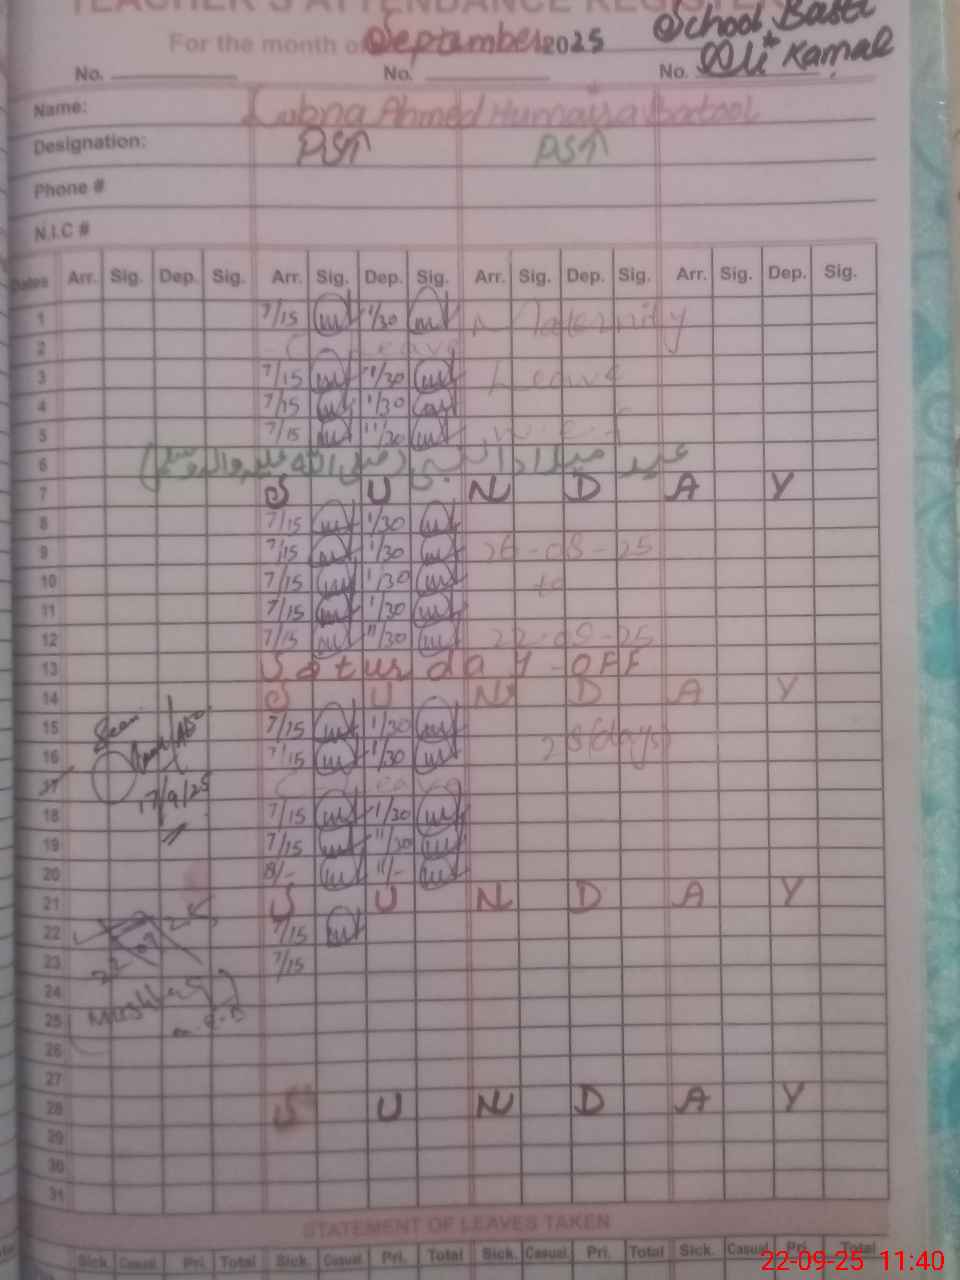 TEACHER'S ATTENDANCE REGISTER
School Basti
For the month of September 2025
Oli Kamal
No. No. No.
Name: Lubna Ahmed Humaira Batool
Designation: PST PST
Phone #
N.I.C #
Dates Arr. Sig. Dep. Sig. Arr. Sig. Dep. Sig. Arr. Sig. Dep. Sig. Arr. Sig. Dep. Sig.
1 7/15 1/30 Maternity
2 C Leave
3 7/15 11/30 Leave
4 7/15 1/30
5 7/15 11/30 w.e.f
6 عید میلاد النبی (صلی اللہ علیہ والہ وسلم)
7 S U N D A Y
8 7/15 1/30
9 7/15 1/30 26-08-25
10 7/15 1/30 to
11 7/15 1/30
12 7/15 11/30 22-09-25
13 Saturday-OFF
14 S U N D A Y
15 Seen 7/15 1/30
16 7/15 1/30 28(days)
17 17/9/25 C Leave
18 7/15 1/30
19 7/15 11/30
20 8/- 11/-
21 S U N D A Y
22 7/15
23 7/15
24
25
26
27
28 S U N D A Y
29
30
31
STATEMENT OF LEAVES TAKEN
Sick. Casual Pri. Total Sick. Casual Pri. Total Sick. Casual Pri. Total Sick. Casual Pri. Total
22-09-25 11:40